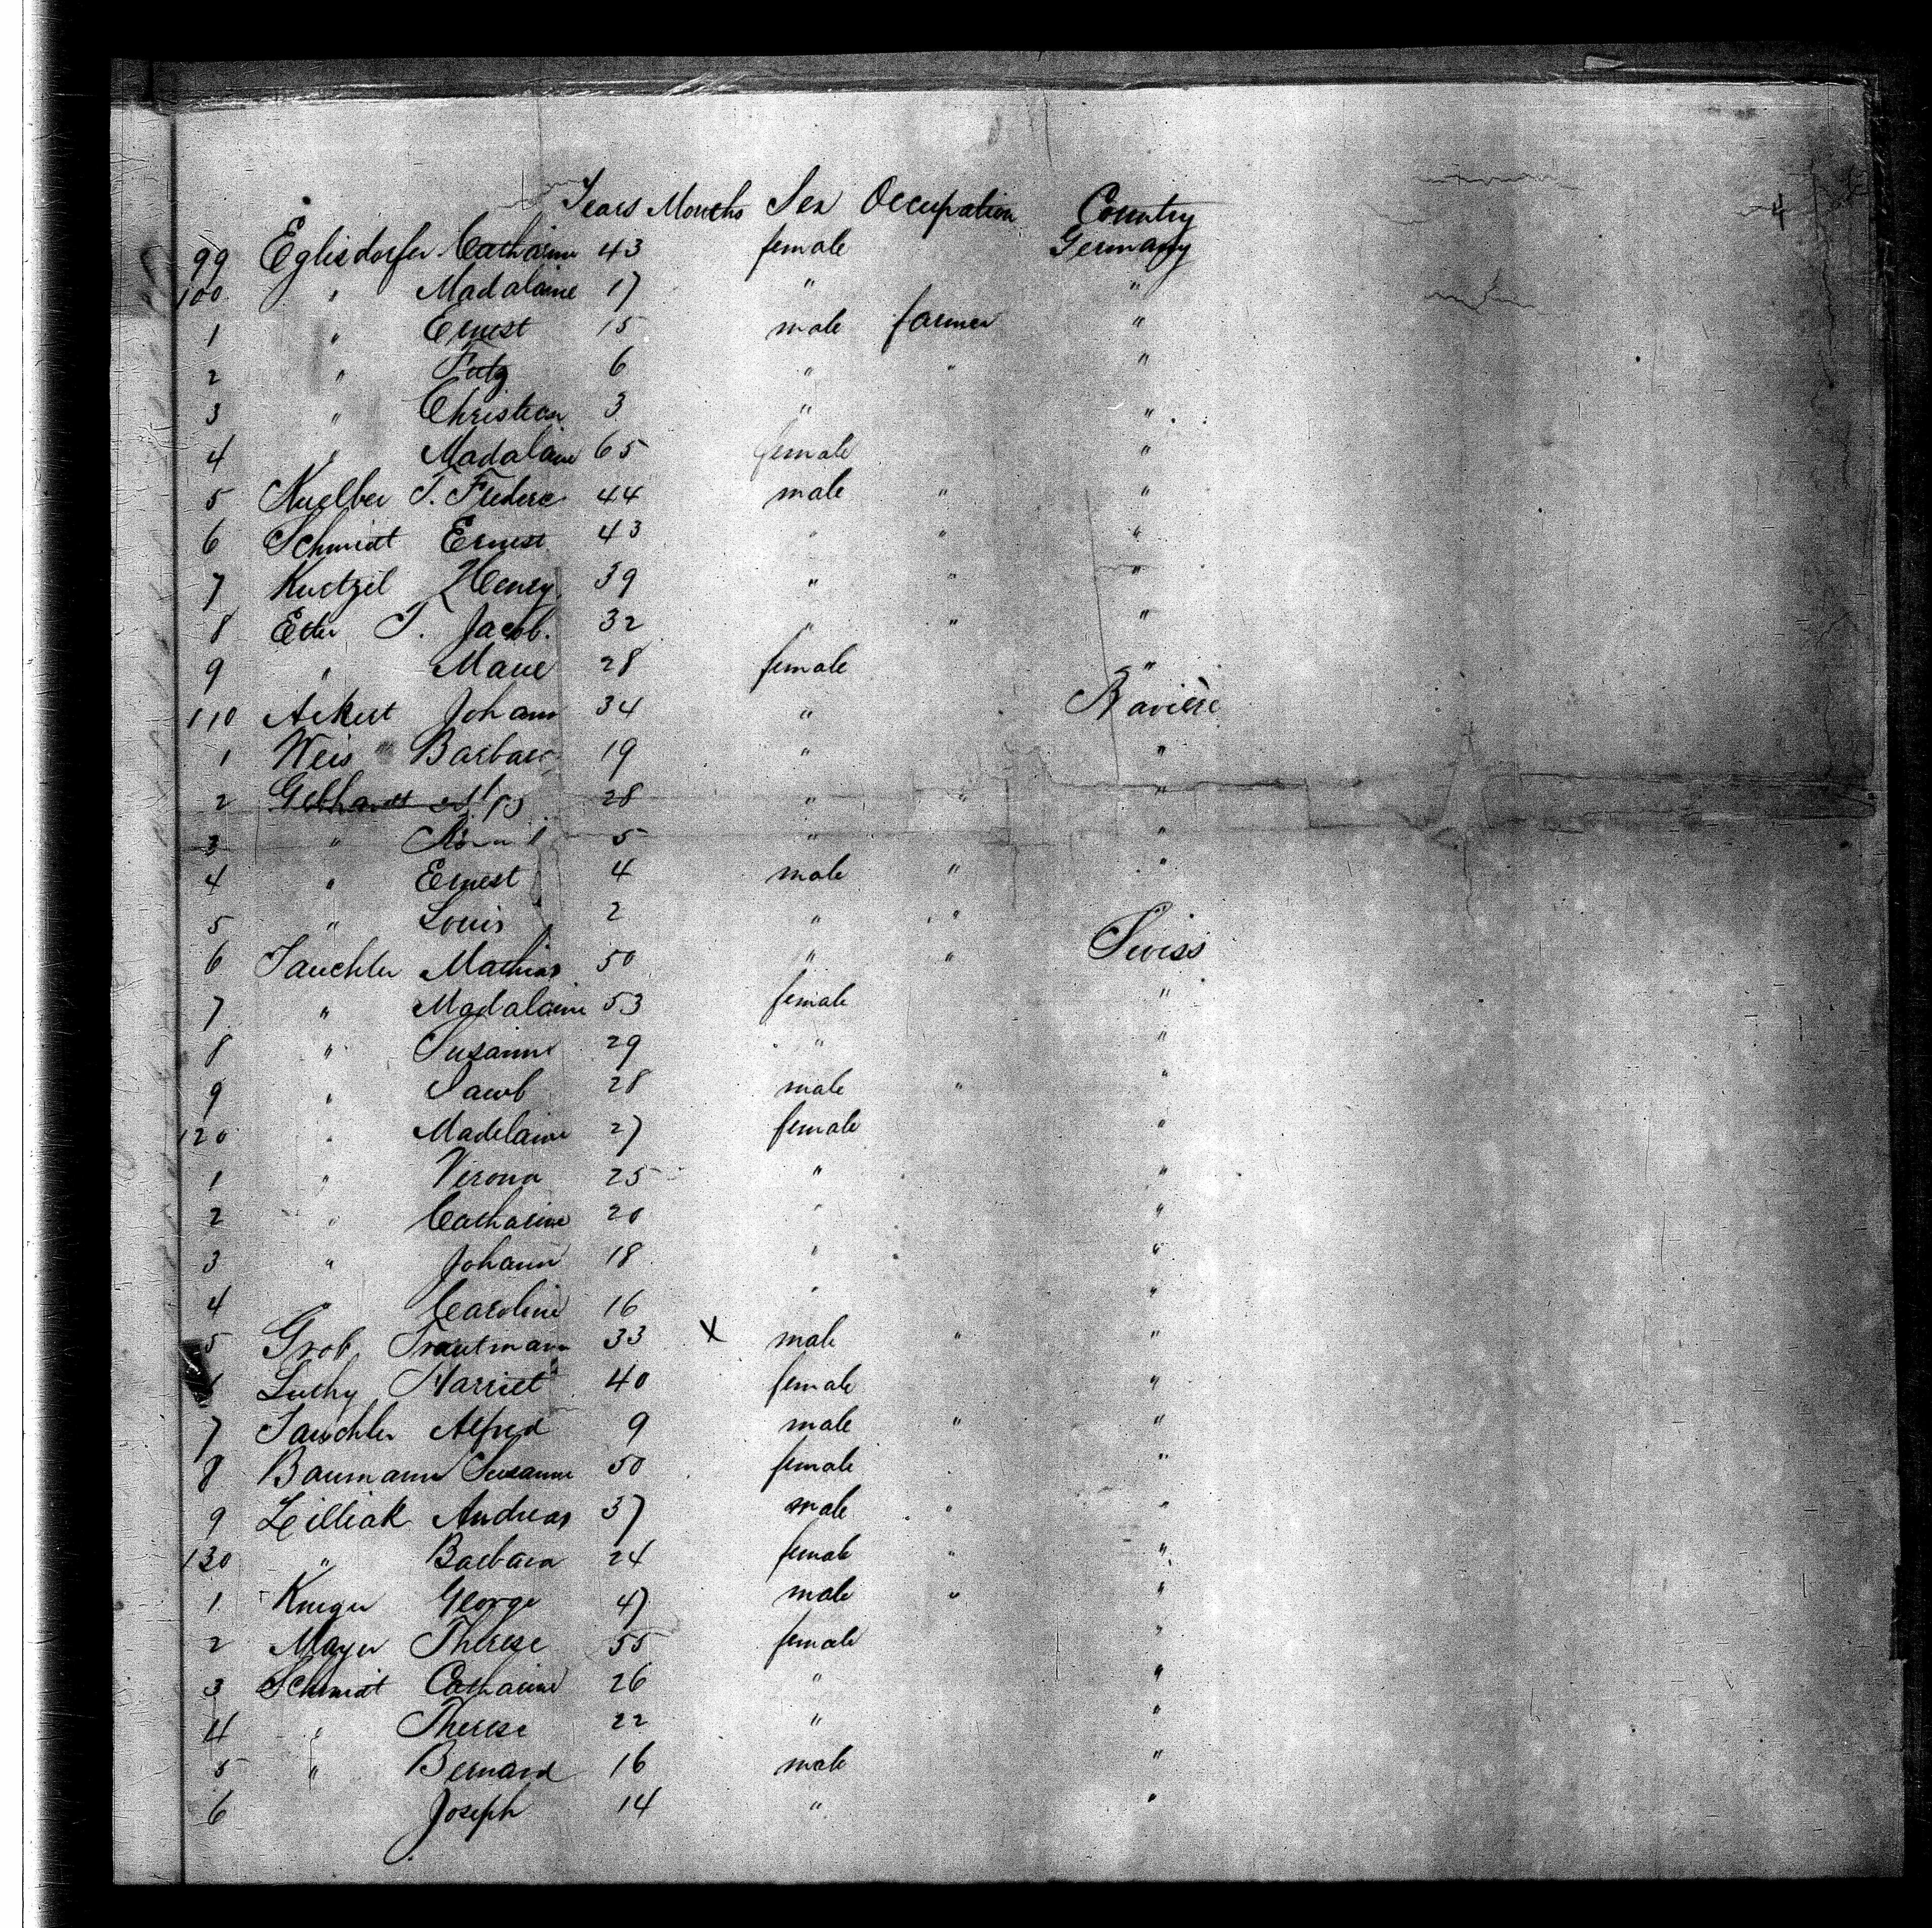 4
Years Months Sex Occupation Country
99 Eglisdorfer Catharine 43 female Germany
100 " Madalaine 17 " "
1 " Ernest 15 male farmer "
2 " 6 " " "
3 " Christian 3 " "
4 " Madalaine 65 female "
5 Kuelber T. Frederc 44 male " "
6 Schmidt Ernest 43 " " "
7 Kuetzel Henry 39 " " "
8 Etter J. Jacob. 32 " " "
9 " Marie 28 female "
110 Ackert Johann 34 " Bavière
1 Weis Barbara 19 " "
2 Gebhardt 28 " " "
3 " 5 " "
4 " Ernest 4 male " "
5 " Louis 2 " " "
6 Tauchler Mathias 50 " " Swiss
7 " Madalaine 53 female "
8 " Susanne 29 " "
9 " Jacob 28 male " "
120 " Madelaine 27 female "
1 " Verona 25 " "
2 " Catharine 20 " "
3 " Johann 18 " "
4 Caroline 16 " "
5 Grob Trautmann 33 X male " "
6 Luthy Harriet 40 female "
7 Tauchler Alfred 9 male " "
8 Baumann Susanne 50 female "
9 Zilliak Andreas 37 male " "
130 " Barbara 24 female " "
1 Krieger George 47 male " "
2 Mayer Therese 55 female "
3 Schmidt Catharine 26 " "
4 " Therese 22 " "
5 " Bernard 16 male "
6 Joseph 14 " "